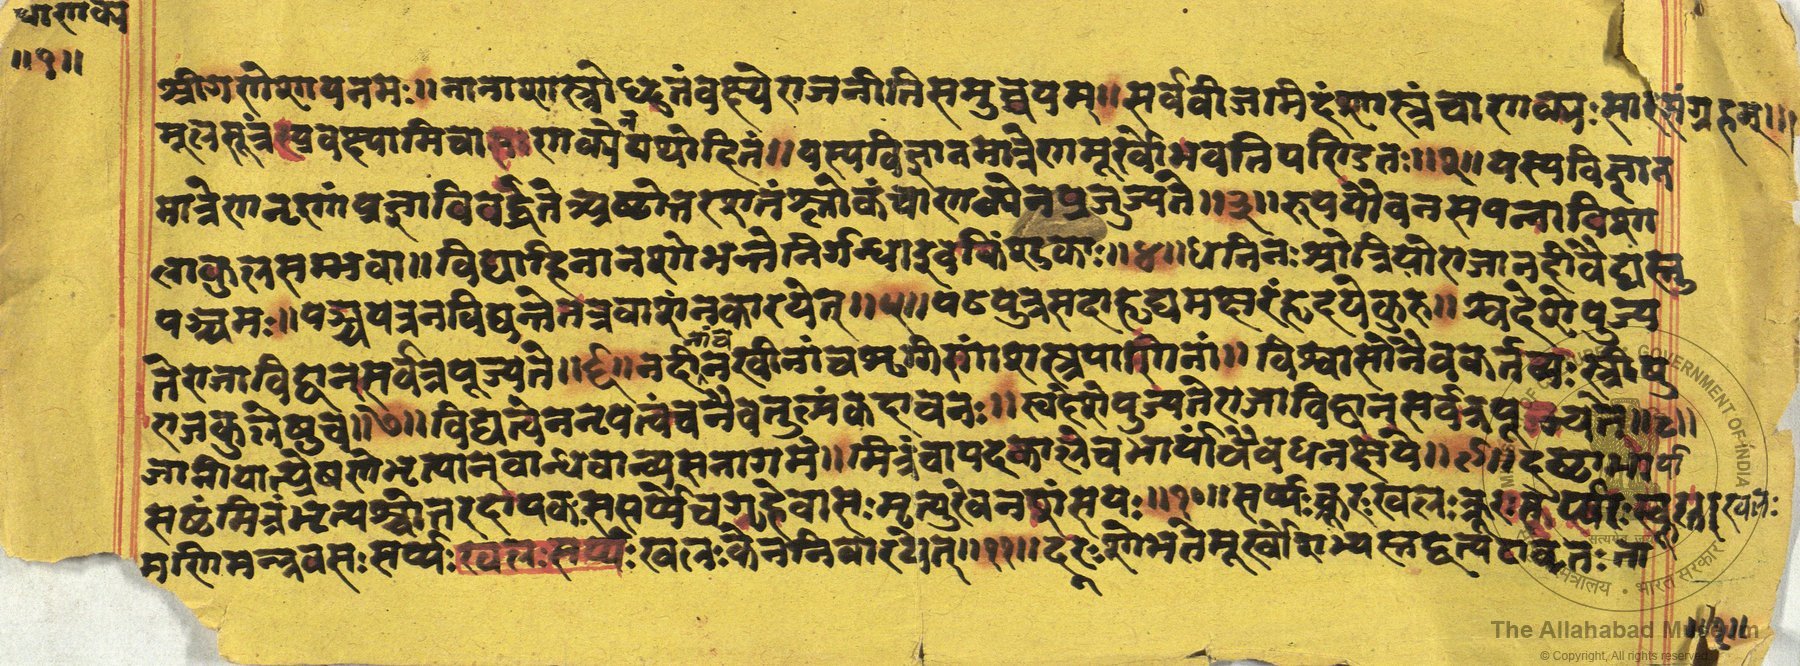 चाराक्य
॥१॥
श्रीगरोशायनमः॥नानाशास्त्रोद्धृतंवक्ष्येराजनीतिसमुच्चयम्॥सर्ववीजमिदंशास्त्रंचाराक्यःसारसंग्रहम्॥१
मूलसूत्रंप्रवक्ष्यामिचाराक्येनयथोदितं॥यस्यविज्ञानमात्रेरामूर्खोभवतिपण्डितः॥२॥यस्यविज्ञान
मात्रेरानृरांप्रज्ञाविवर्द्धतेअष्टोत्तरशतंश्लोकंचाराक्येनप्रजुज्यतै॥३॥रूपयौवनसंपन्नाविशा
लाकुलसम्भवा॥विद्याहिनानशोभन्तेनिर्गन्धाइवकिंशुकाः॥४॥धनिनःश्रोत्रियोराजानदीवैद्यस्तु
पञ्चमः॥पञ्चयत्रनविद्यन्तेतत्रवाशंनकारयेत्॥५॥पठपुत्रसदाहृद्यमक्षरंहृदयेकुरु॥श्वदेशेपुज्य
तेराजाविद्वान्सर्वत्रपूज्यते॥६॥नदीनांचनखीनांचश्रृगिरांशस्त्रपारिनां॥विश्वासोनैवकर्तव्यःस्त्रीषु
राजकुलेषुच॥७॥विद्यत्वंचनृपत्वंचनैवतुल्यंकदाचन॥स्वदेशेपुज्यतेराजाविद्वान्सर्वत्रपूज्यते॥८॥
जानीयात्प्रेषरोभृत्यान्वान्धवान्व्यसनागमे॥मित्रंचापदकालेचभार्यांचैवधनक्षये॥९॥दुष्टाभार्या
सष्टंमित्रंभृत्यश्चोत्तरदायकःससर्प्पेचगृहेवासःमृत्युरेवनशंसयः॥१०॥सर्प्पःक्रूरःखलःक्रूरःसर्प्पात्क्रूरतरःखलः
मरिामन्त्रवसःसर्प्पःखलःकेननिवारयेत्॥११॥दूरःशोभतेमूर्खोराभ्यस्त्रद्वत्पटावृतःता
॥१॥
The Allahabad Museum
© Copyright, All rights reserved
MINISTRY OF CULTURE, GOVERNMENT OF INDIA
सत्यमेव जयते
मंत्रालय • भारत सरकार